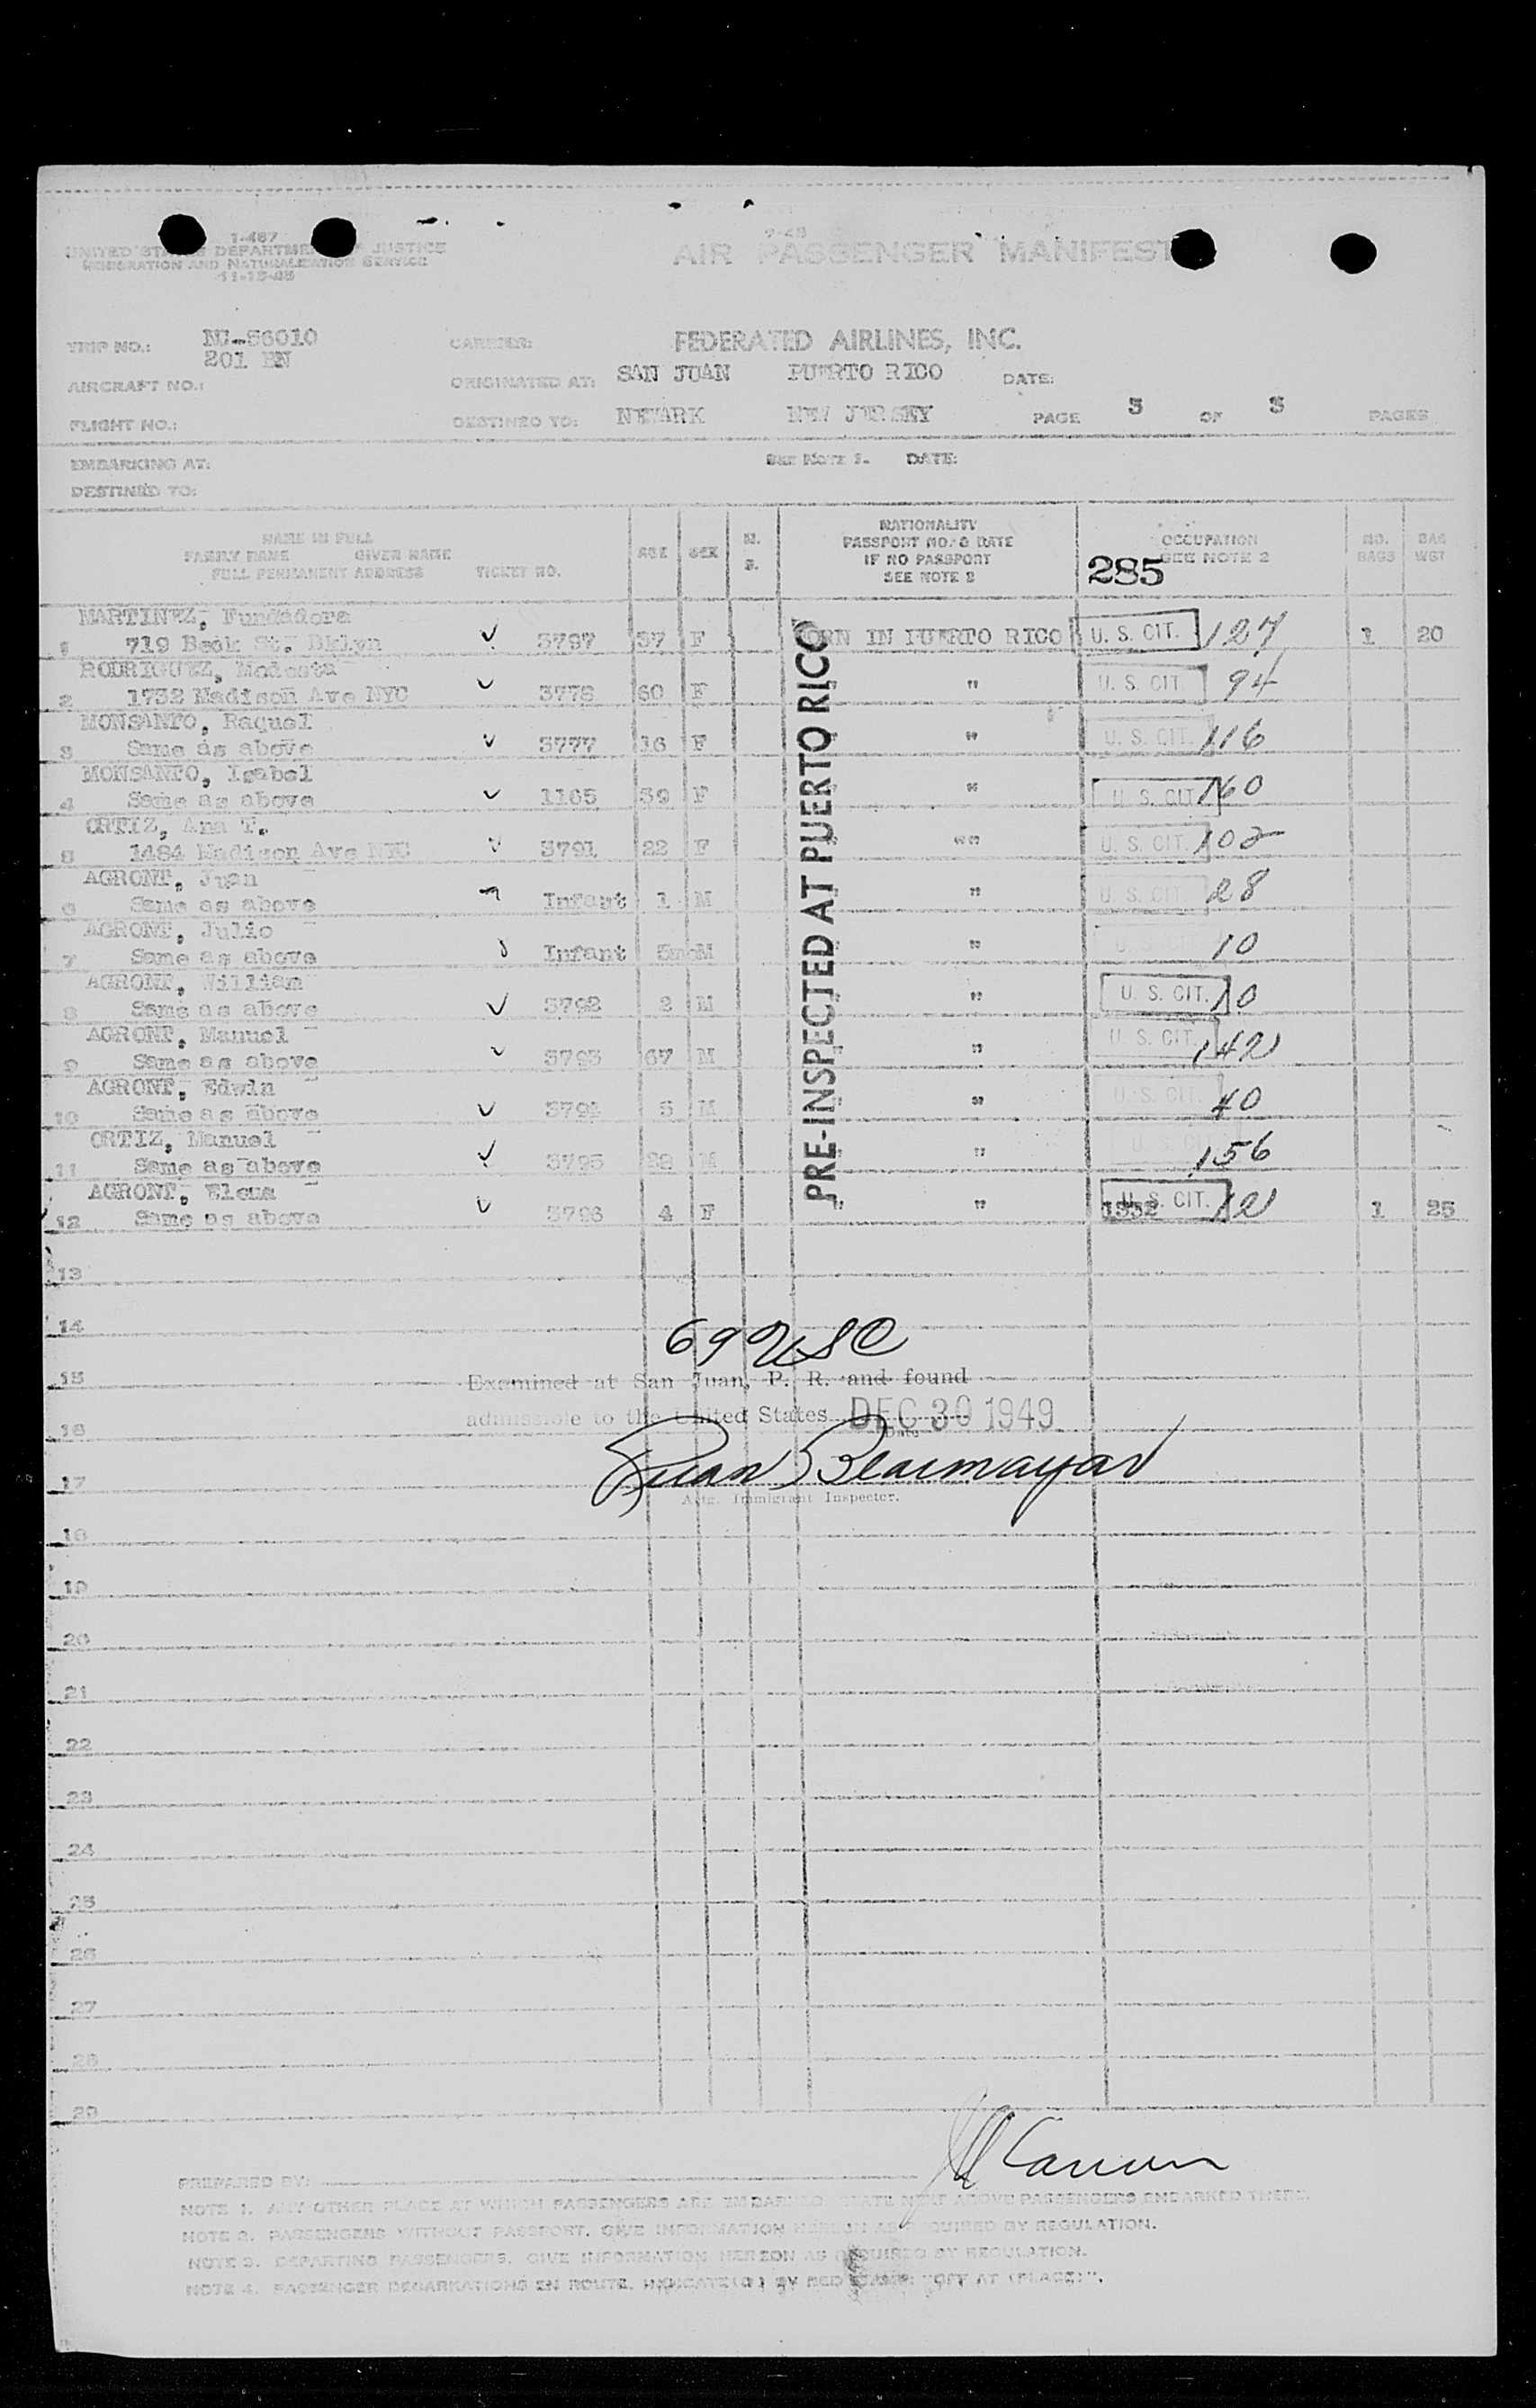 I-467
UNITED STATES DEPARTMENT OF JUSTICE
IMMIGRATION AND NATURALIZATION SERVICE
11-15-45
7-48
AIR PASSENGER MANIFEST
TRIP NO.: NL-56010
201 BN
CARRIER: FEDERATED AIRLINES, INC.
AIRCRAFT NO.: ORIGINATED AT: SAN JUAN PUERTO RICO DATE:
FLIGHT NO.: DESTINED TO: NEWARK NEW JERSEY PAGE 3 OF 3 PAGES
EMBARKING AT: SEE NOTE 1. DATE:
DESTINED TO:
NAME IN FULL
FAMILY NAME GIVEN NAME
FULL PERMANENT ADDRESS TICKET NO. AGE SEX M. S. NATIONALITY PASSPORT NO. & DATE IF NO PASSPORT SEE NOTE 2 OCCUPATION SEE NOTE 2 NO. BAGS BAG WGT
285
PRE-INSPECTED AT PUERTO RICO
MARTINEZ, Fundadora
1 719 Beck St. Bklyn 3797 57 F BORN IN PUERTO RICO U. S. CIT. 127 1 20
RODRIGUEZ, Modesta
2 1732 Madison Ave NYC 3778 60 F " U. S. CIT. 94
MONSANTO, Raquel
3 Same as above 3777 16 F " U. S. CIT. 116
MONSANTO, Isabel
4 Same as above 1165 39 F " U. S. CIT. 160
ORTIZ, Ana T.
5 1484 Madison Ave NYC 3791 22 F "" U. S. CIT. 102
AGRONT, Juan
6 Same as above Infant 1 M " U. S. CIT. 28
AGRONT, Julio
7 Same as above Infant 5m M " U. S. CIT. 10
AGRONT, William
8 Same as above 3792 2 M " U. S. CIT. 10
AGRONT, Manuel
9 Same as above 3793 67 M " U. S. CIT. 142
AGRONT, Edwin
10 Same as above 3794 5 M " U. S. CIT. 40
ORTIZ, Manuel
11 Same as above 3795 M " U. S. CIT. 156
AGRONT, Elena
12 Same as above 3796 4 F " " U. S. CIT. 1 25
13
14
69 USC
15 Examined at San Juan, P. R. and found
16 admissible to the United States DEC 30 1949
Date
17
Actg. Immigrant Inspector.
18
19
20
21
22
23
24
25
26
27
28
29
PREPARED BY:
NOTE 1. ANY OTHER PLACE AT WHICH PASSENGERS ARE EMBARKED, STATE NEXT ABOVE PASSENGERS EMBARKED THERE.
NOTE 2. PASSENGERS WITHOUT PASSPORT, GIVE INFORMATION HEREON AS REQUIRED BY REGULATION.
NOTE 3. DEPARTING PASSENGERS, GIVE INFORMATION HEREON AS REQUIRED BY REGULATION.
NOTE 4. PASSENGER DEBARKATIONS EN ROUTE, INDICATE(D) BY RED STAMP: "OFF AT (PLACE)".